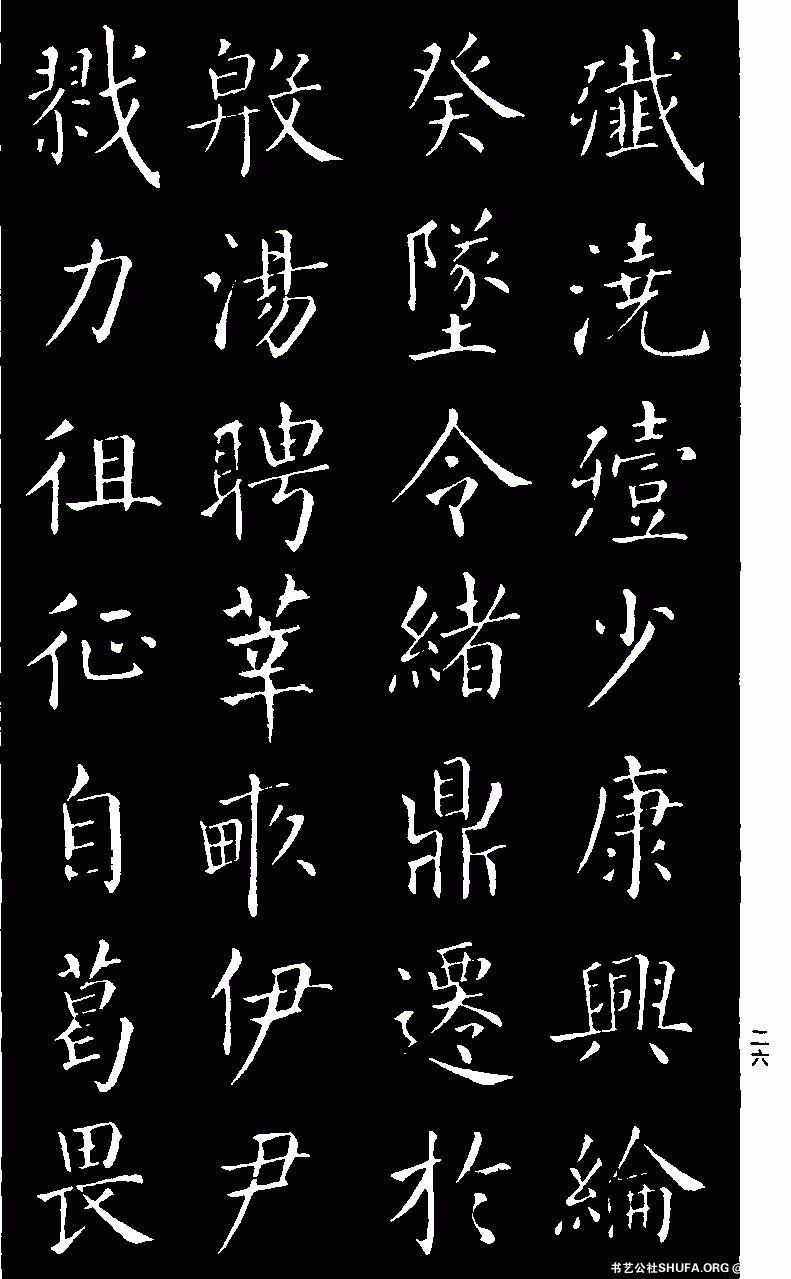 殲澆殪少康興綸
癸墜令緒鼎遷於
殷湯聘莘畝伊尹
戮力徂征自葛畏
二六
书艺公社SHUFA.ORG @